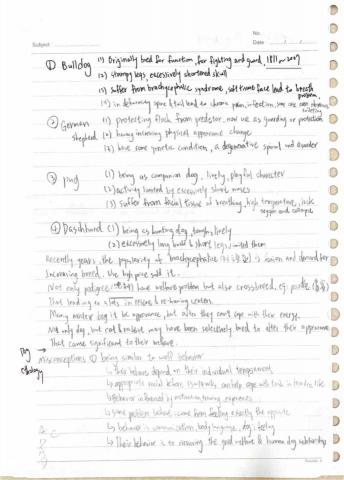 No.
Subject
Date
① Bulldog (1) Originally bred for function, for fighting and guard, 1811 ~ 2009
(2) strumpy legs, excessively shortened skull
(3) suffer from brachycephalic syndrome, soft tissue face lead to breath problem,
(4) in deforming spine & tail lead to chronic pain, infection, some
② German shepherd (1) protecting flock from predator, now use as guarding or protection
(2) having increasing physical apperance change
(3) have some genetic condition, a degenerative spinal cord disorder
③ pug (1) being as companion dog, lively, playful character
(2) activity limited by excessively short noses
(3) suffer from facial tissue of breathing, high temperature, lack oxygen and collapse
④ Dashhund (1) being as hunting dog, tough, lively
(2) excessively long build & short legs limited them
Recently years, the popularity of brachycephalic is fasion and demand for
Increasing breed. Use high price sold it.
Not only pedigree have welfare problem but also crossbreed, eg: poodle
That leading to a lots in rescue & re-homing centers.
Many master buy it be appearance, but after they can't cope with their energy.
Not only dog, but cat & rabbit may have been selectively bred to alter their appearance
That cause significant to their behave.
Dog → misconceptions ① being similar to wolf behavior
↳ Their behave depend on their individual temperament
↳ appropriate social behave
↳ Behavior influenced by
↳ some problem behave, come from feeling exactly the opposite
↳ behavior is communication, body language, dog's feeling
↳ Their behavior is to ensuring the good welfare & human dog relationship